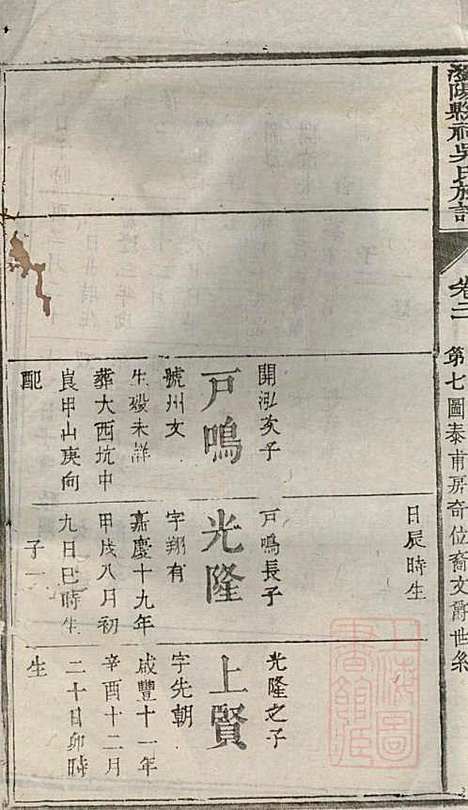 瀏陽縣祠吳氏族譜
卷二
第七圖泰甫房奇位裔文爵世系
日辰時生
開泓次子
戶鳴
號州文
生歿未詳
葬大西坑中
艮甲山庚向
配
戶鳴長子
光隆
字翔有
嘉慶十九年
甲戌八月初
九日巳時生
子一
光隆之子
上賢
字先朝
咸豐十一年
辛酉十二月
二十日卯時
生
上海圖書館藏